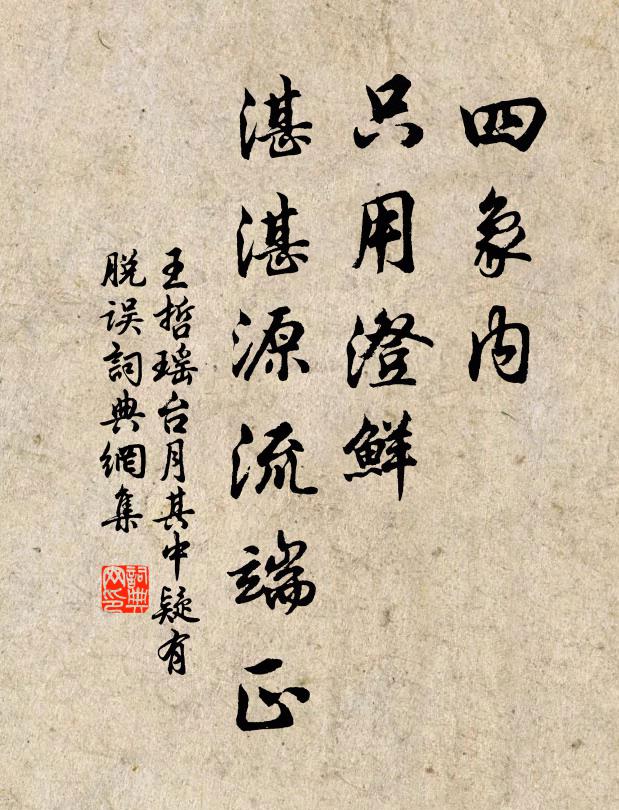 四象内
只用澄鮮
湛湛源流端正
王哲瑶台月其中疑有
脱误詞典網集
詞典網印